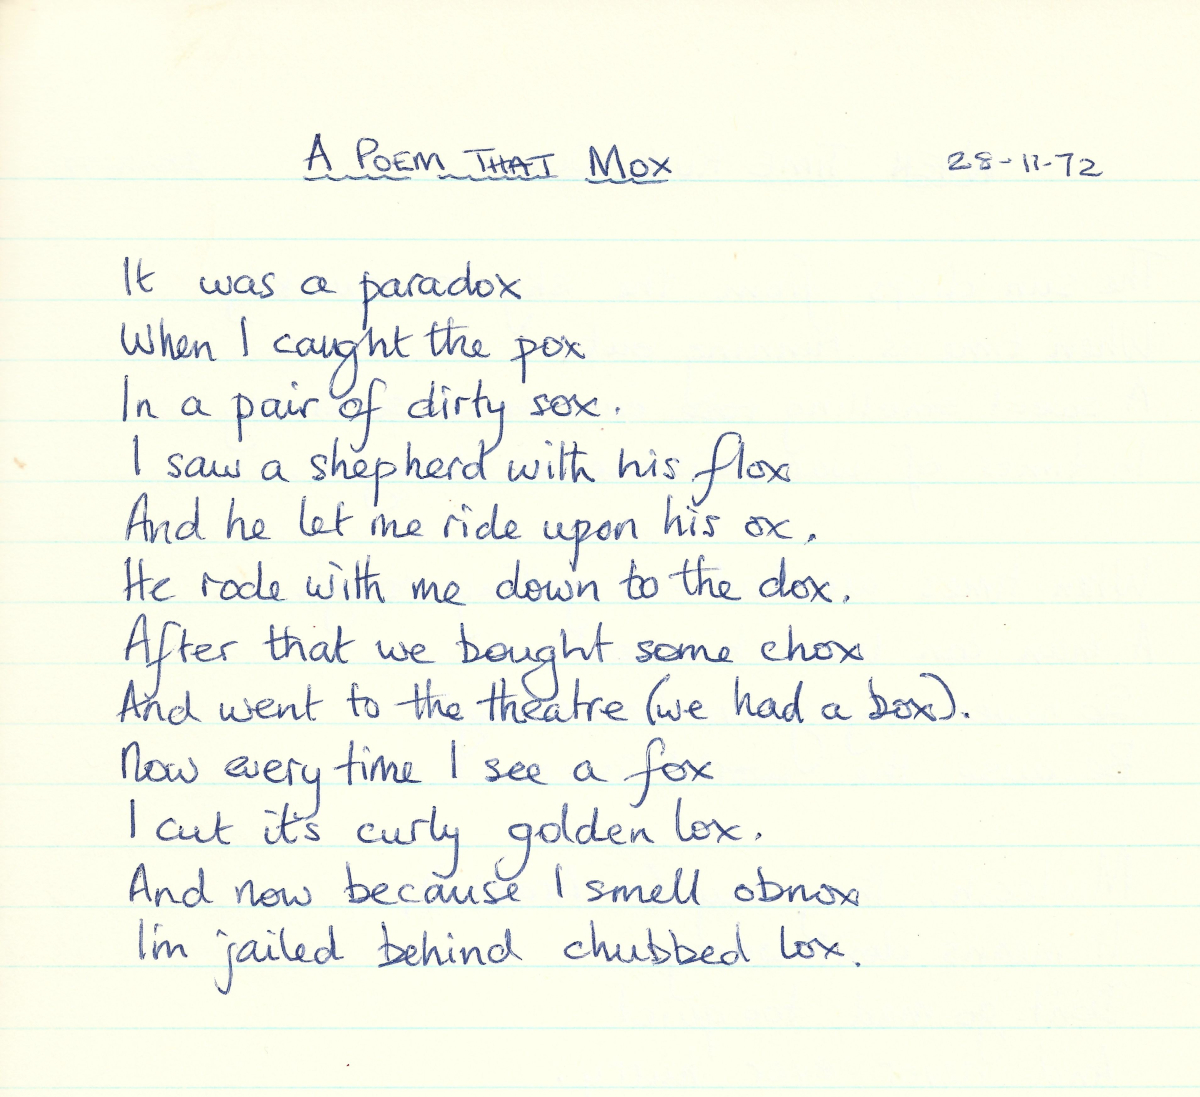 A POEM THAT MOX 28-11-72
It was a paradox
When I caught the pox
In a pair of dirty sox.
I saw a shepherd with his flox
And he let me ride upon his ox.
He rode with me down to the dox.
After that we bought some chox
And went to the theatre (we had a box).
Now every time I see a fox
I cut it's curly golden lox.
And now because I smell obnox
I'm jailed behind chubbed lox.